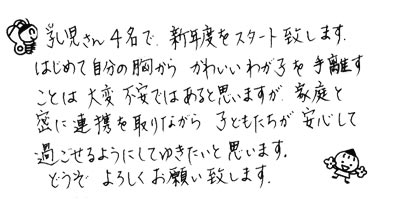 乳児さん4名で、新年度をスタート致します。
はじめて自分の胸から かわいいわが子を 手離す
ことは 大変 不安ではあると思いますが、家庭と
密に連携を取りながら 子どもたちが 安心して
過ごせるようにしてゆきたいと思います。
どうぞ よろしくお願い致します。